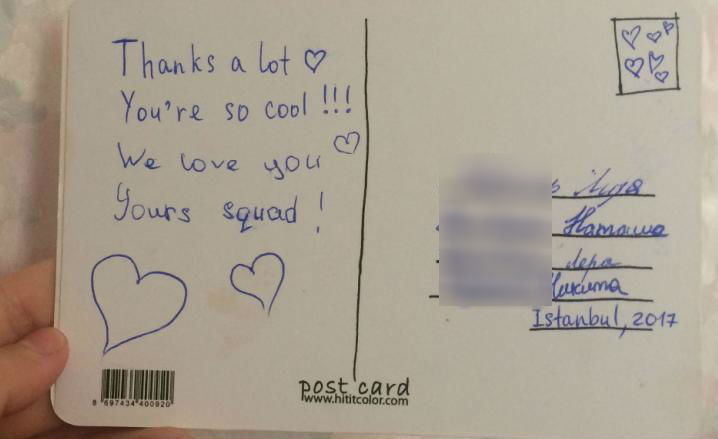 Thanks a lot ♡
You're so cool !!!
We love you ♡
Yours squad !
Наташа
Лера
Никита
Istanbul, 2017
8 697434 400920
post card
www.hititcolor.com